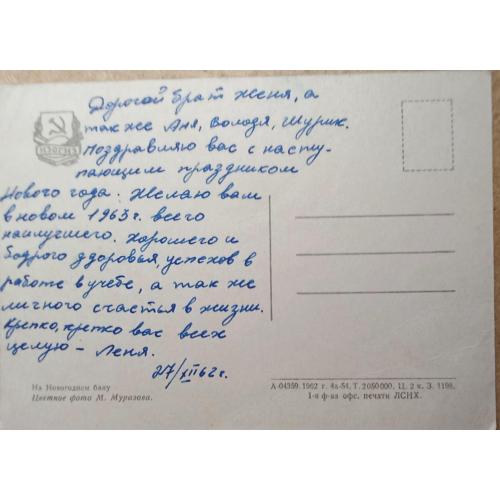 ИЗОГИЗ
Дорогой брат Женя, а
так же Аня, Володя, Шурик.
Поздравляю вас с насту-
пающим праздником
Нового года. Желаю вам
в новом 1963 г. всего
наилучшего. Хорошего и
бодрого здоровья, успехов в
работе в учебе, а так же
личного счастья в жизни.
Крепко, крепко вас всех
целую – Леня.
27/XII 62 г.
На Новогоднем балу
Цветное фото М. Муразова.
А-04359. 1962 г. 4л-54. Т. 2050000. Ц. 2 к. З. 1198.
1-я ф-ка офс. печати ЛСНХ.